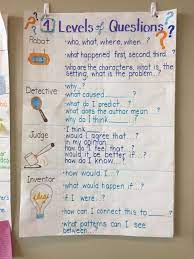 1 Levels of Questions?
Robot
·who, what, where, when...?
·what happened first, second, third...?
·who are the characters, what is the
setting, what is the problem...?
Detective
·why...?
·what caused...?
·what do I predict...?
·what does the author mean...?
·why do I think...?
Judge
·I think...
·would I agree that...?
·in my opinion...
·how do I feel that...?
·would it be better if...?
·how do I know...?
Inventor
·how would I...?
·what would happen if...?
·if I were...?
·how can I connect this to...?
·what patterns can I see
between...?